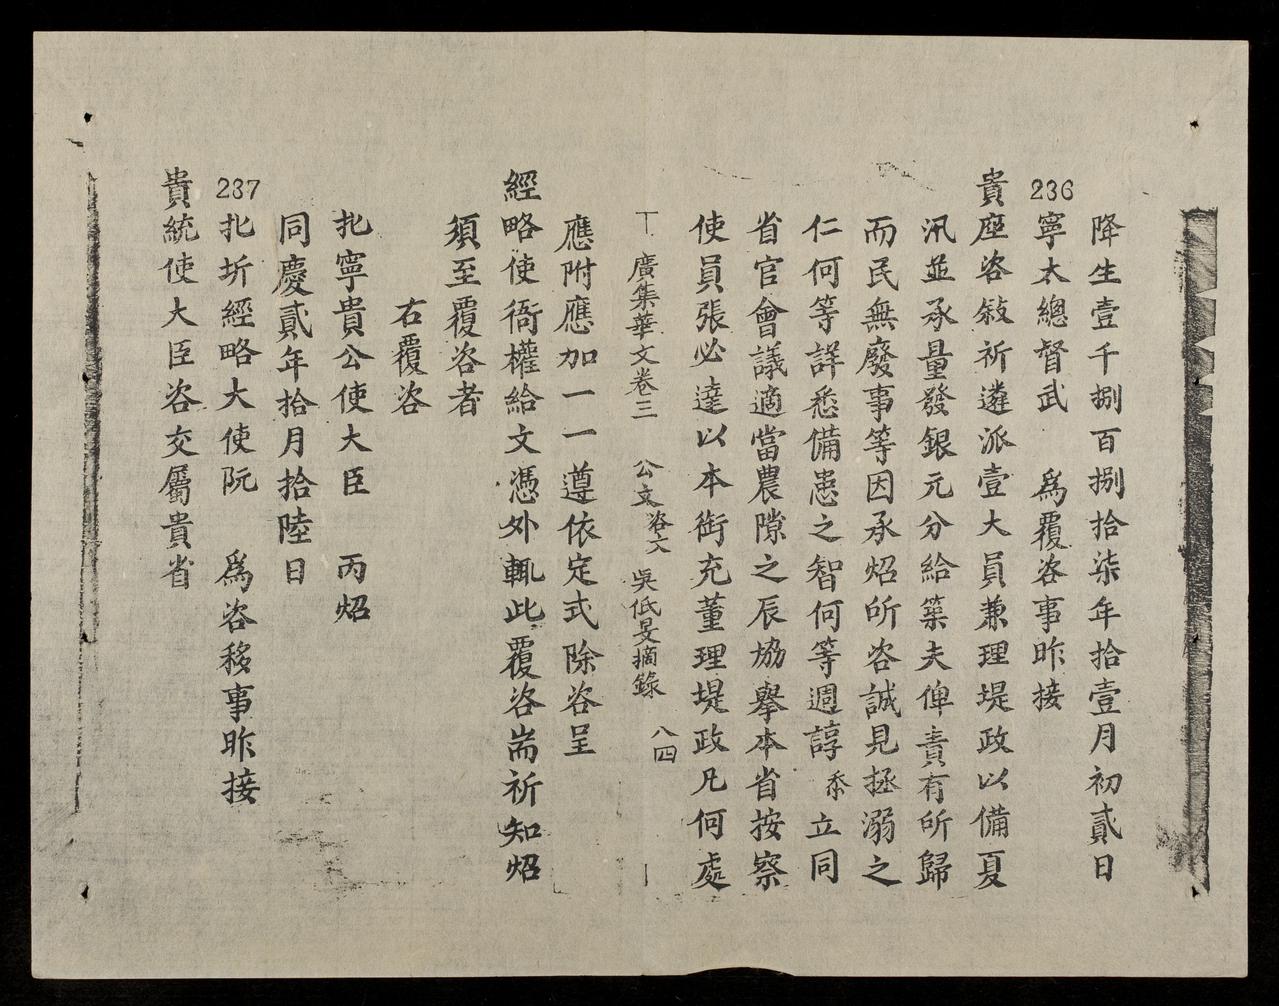 降生壹千捌百捌拾柒年拾壹月初貳日
236
寧太總督武 爲覆咨事昨接
貴座咨敍祈遴派壹大員兼理堤政以備夏
汛並承量發銀元分給築夫俾責有所歸
而民無廢事等因承炤所咨誠見拯溺之
仁何等詳悉備患之智何等週諄忝立同
省官會議適當農隙之辰協舉本省按察
使員張必達以本銜充董理堤政凡何處
廣集華文卷三 公文 咨六 吳低旻摘錄 八四
應附應加一一遵依定式除咨呈
經略使衙權給文憑外輒此覆咨耑祈知炤
須至覆咨者
右覆咨
扎寧貴公使大臣 丙炤
同慶貳年拾月拾陸日
237
扎圻經略大使阮 爲咨移事昨接
貴統使大臣咨交屬貴省